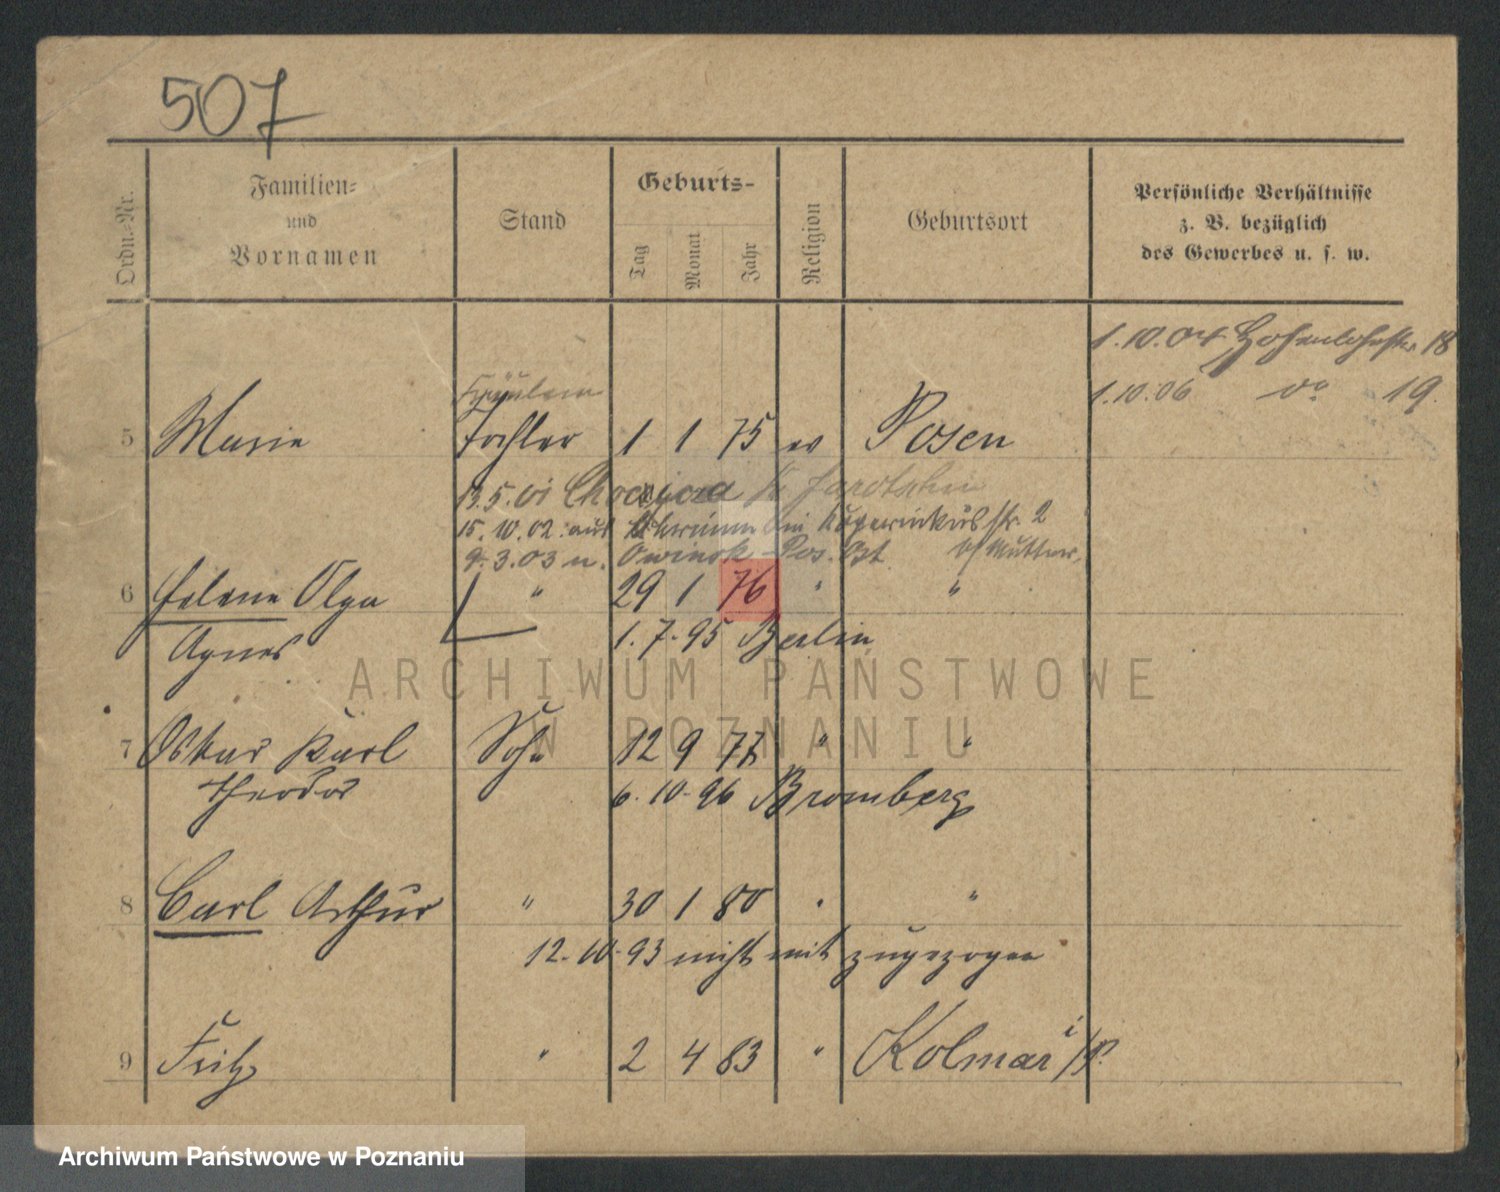 507
Ordn.-Nr.
Familien-
und
Vornamen
Stand
Geburts-
Tag
Monat
Jahr
Religion
Geburtsort
Persönliche Verhältnisse
z. B. bezüglich
des Gewerbes u. s. w.
1.10.04 Hohenlohestr. 18
1.10.06 do 19.
Fräulein
5 Marie Tochter 1 1 75 ev Posen
13.5.01
15.10.02. aus
9.3.03 n. Owinsk Pos. Ost v/Mutter.
6 Helene Olga " 29 1 76 " "
Agnes 1. 7. 95 Berlin
7 Oskar Karl Sohn 12 9 77 " "
Theodor 6. 10. 96 Bromberg
8 Carl Arthur " 30 1 80 " "
12.10.93 nicht mit zugezogen
9 Fritz " 2 4 83 " Kolmar i/P.
ARCHIWUM PAŃSTWOWE
W POZNANIU
Archiwum Państwowe w Poznaniu